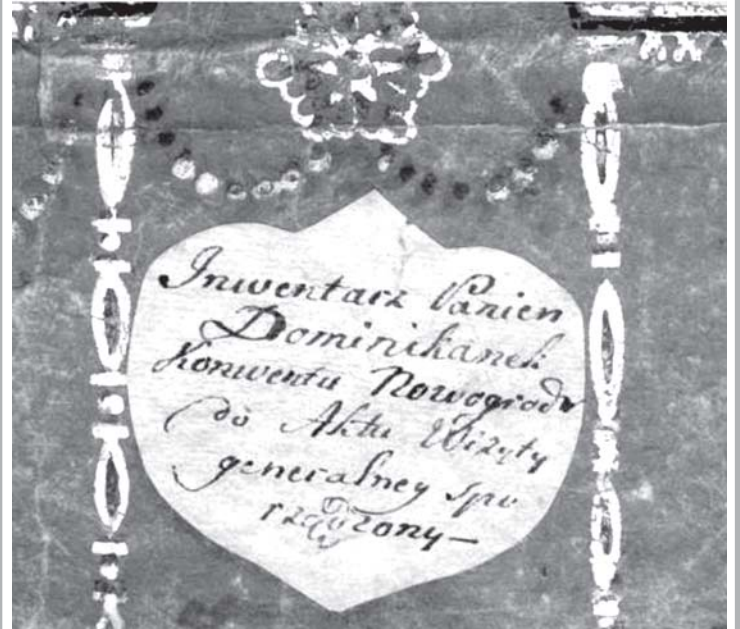 Inwentarz Panien
Dominikanek
Konwentu Nowogrod
do Aktu Wizyty
generalney spo
rządzony—